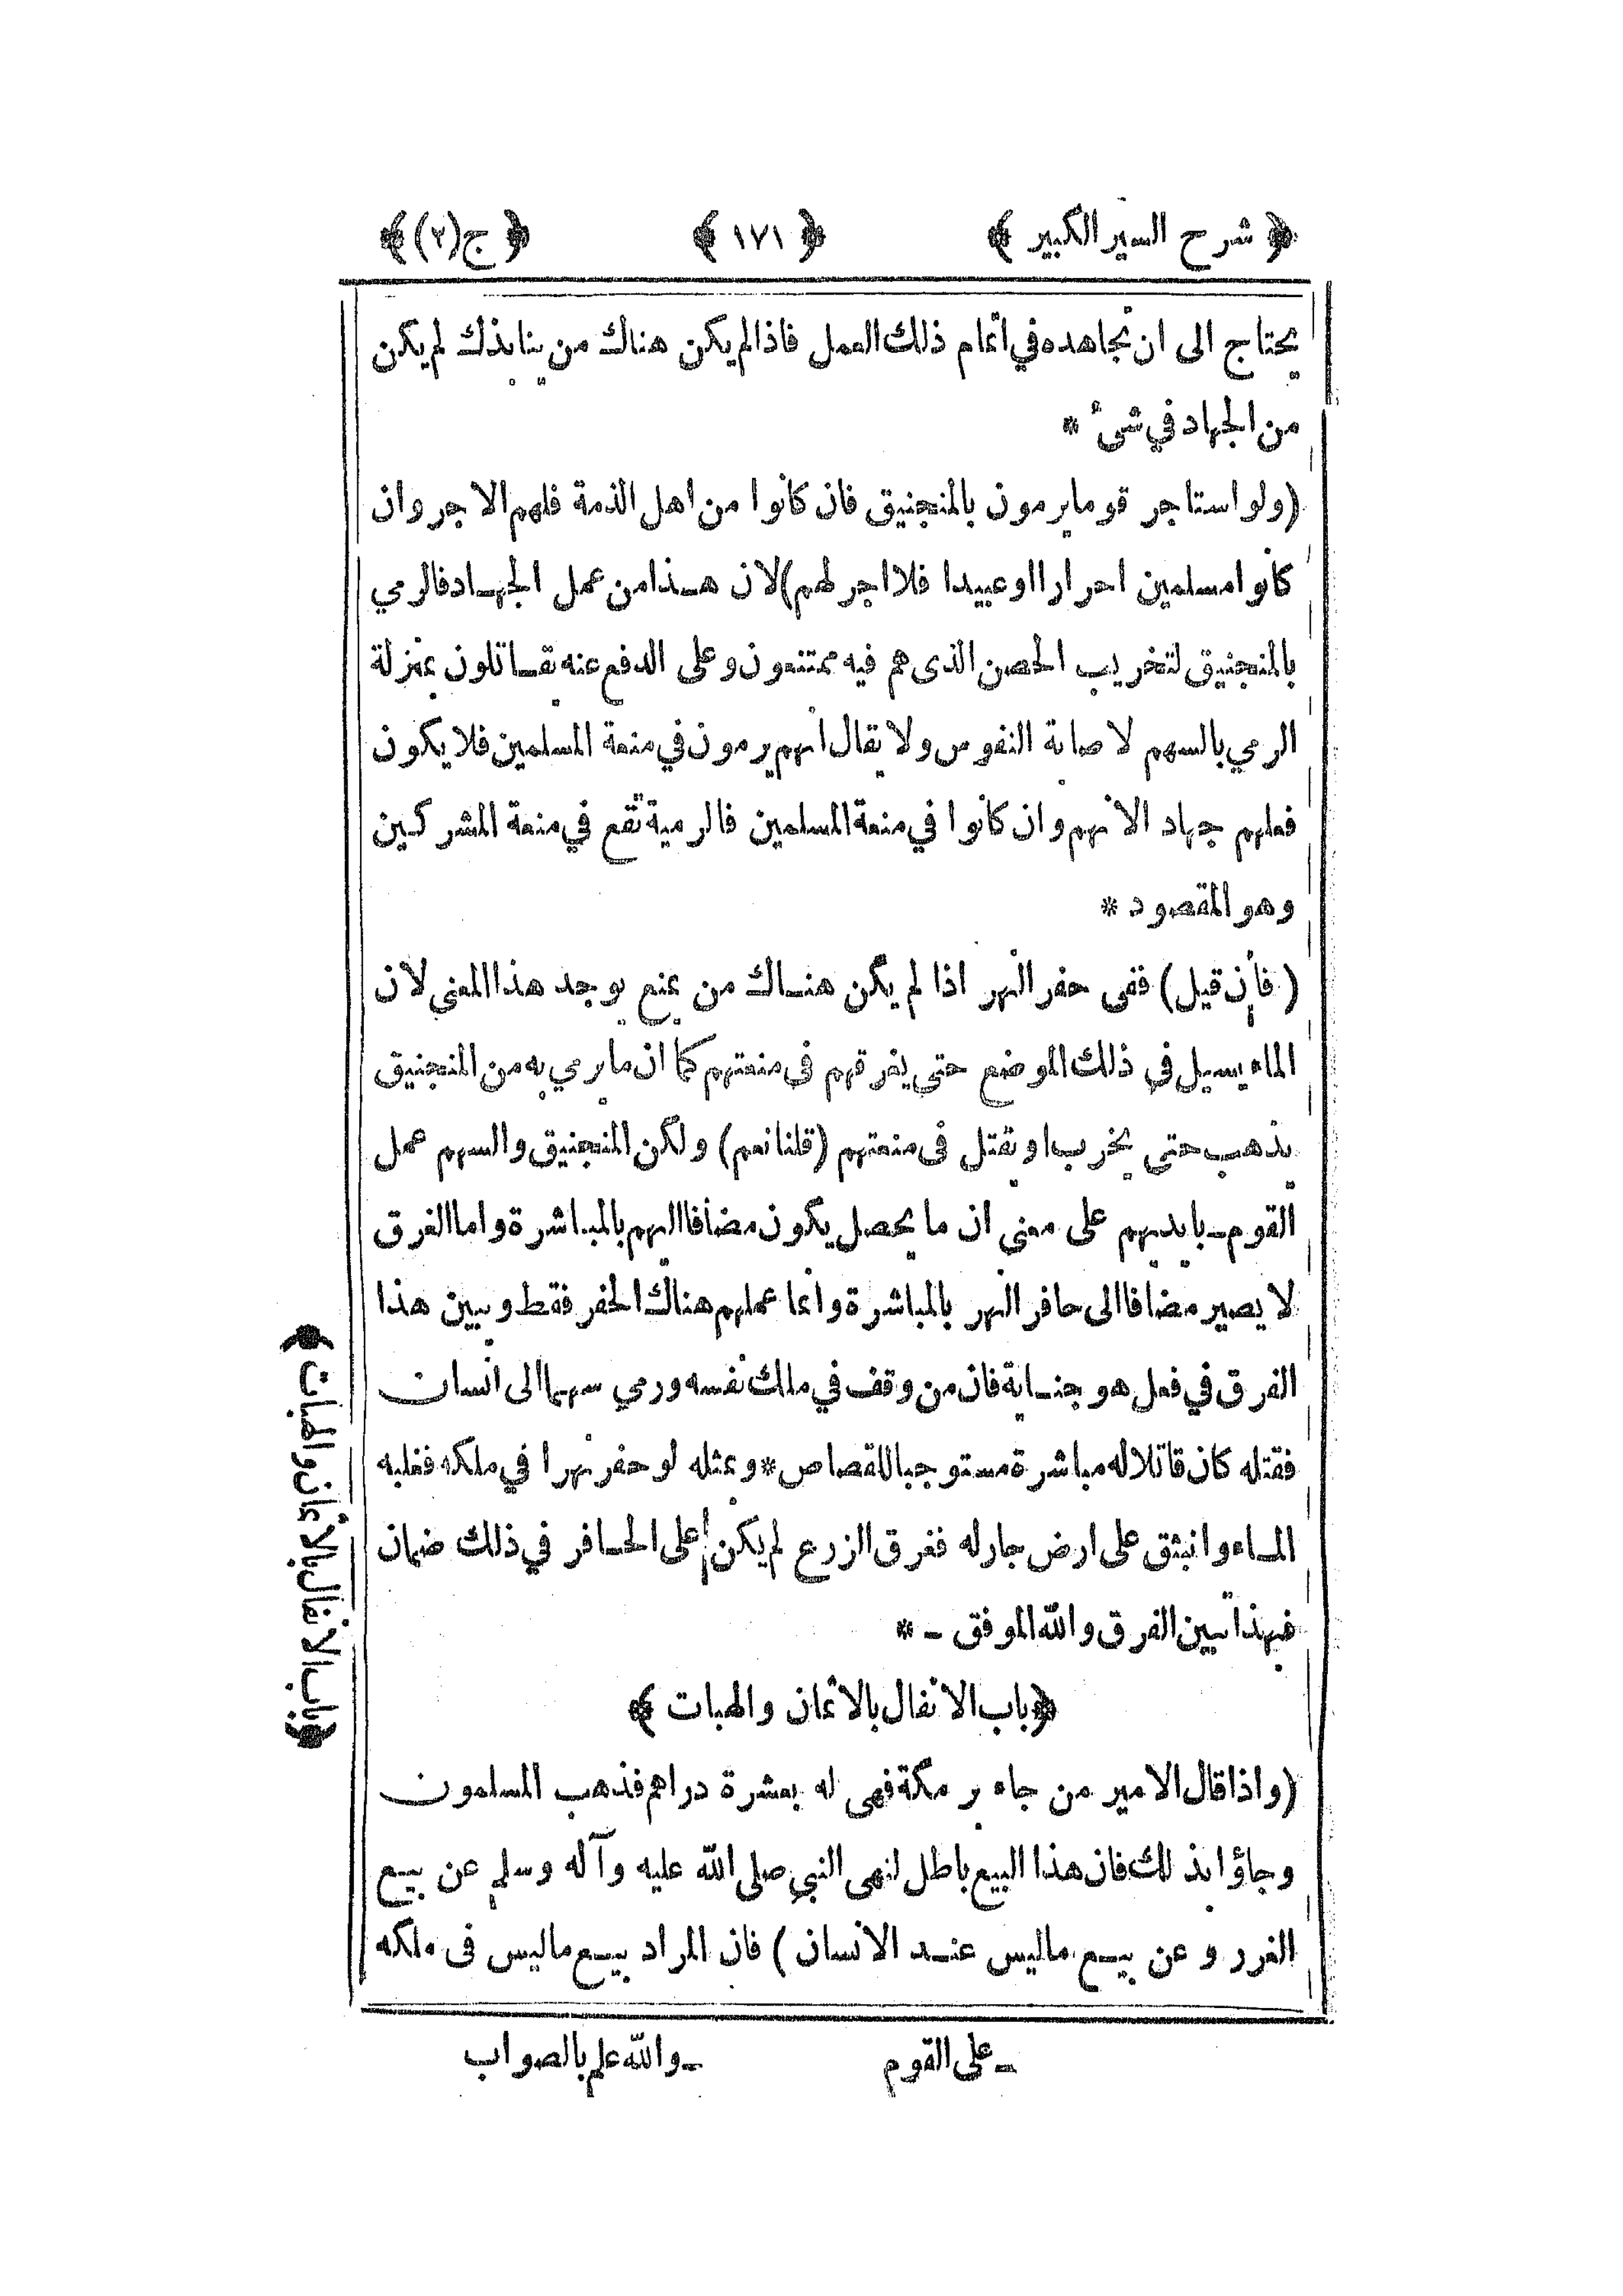 ﴿ شرح السير الكبير ﴾ ﴿ ١٧١ ﴾ ﴿ ج (٢) ﴾
يحتاج الى ان تجاهده في اتمام ذلك العمل فاذا لم يكن هناك من ينابذك لم يكن
من الجهاد في شئ *
(ولو استاجر قوما يرمون بالمنجنيق فان كانوا من اهل الذمة فلهم الاجر وان
كانوا مسلمين احرارا او عبيدا فلا اجر لهم) لان هـذا من عمل الجهـاد فالرمي
بالمنجنيق لتخريب الحصن الذى هم فيه ممتنعون وعلى الدفع عنه يقـاتلون بمنزلة
الرمي بالسهم لا صابة النفوس ولا يقال انهم يرمون في منعة المسلمين فلا يكون
فعلهم جهاد الانهم وان كانوا في منعة المسلمين فالرمية تقع في منعة المشركـين
وهو المقصود *
(فان قيل) ففى حفر النهر اذا لم يكن هنـاك من يمنع يوجد هذا المعنى لان
الماء يسيل في ذلك الموضع حتى يفرقهم فى منعتهم كما ان ما يرمي به من المنجنيق
يذهب حتى يخرب او يقتل فى منعتهم (قلنا نعم) ولكن المنجنيق والسهم عمل
القوم ـ بايديهم على معنى ان ما يحصل يكون مضافا اليهم بالمبـاشرة واما الغرق
لا يصير مضافا الى حافر النهر بالمباشرة وانما عملهم هناك الحفر فقط وبين هذا
الفرق في فعل هو جنـاية فان من وقف في ملك نفسه ورمي سهما الى انسان
فقتله كان قاتلا له مباشرة مستوجبا للقصاص * وبمثله لو حفر نهرا في ملكه فغلبه
المـاء وانبثق على ارض جار له ففرق الزرع لم يكن على الحـافر في ذلك ضمان
فبهذا تبين الفرق والله الموفق ـ *
﴿ باب الانفال بالاثمان والهبات ﴾
(واذا قال الامير من جاء برمكة فهى له بعشرة دراهم فذهب المسلمون
وجاؤا بذلك فان هذا البيع باطل لنهى النبي صلى الله عليه وآله وسلم عن بيـع
الغرر وعن بيـع ماليس عنـد الانسان) فان المراد بيـع ماليس فى ملكه
ـ على القوم ـ والله علم بالصواب
﴿ باب الانفال بالاثمان والهبات ﴾